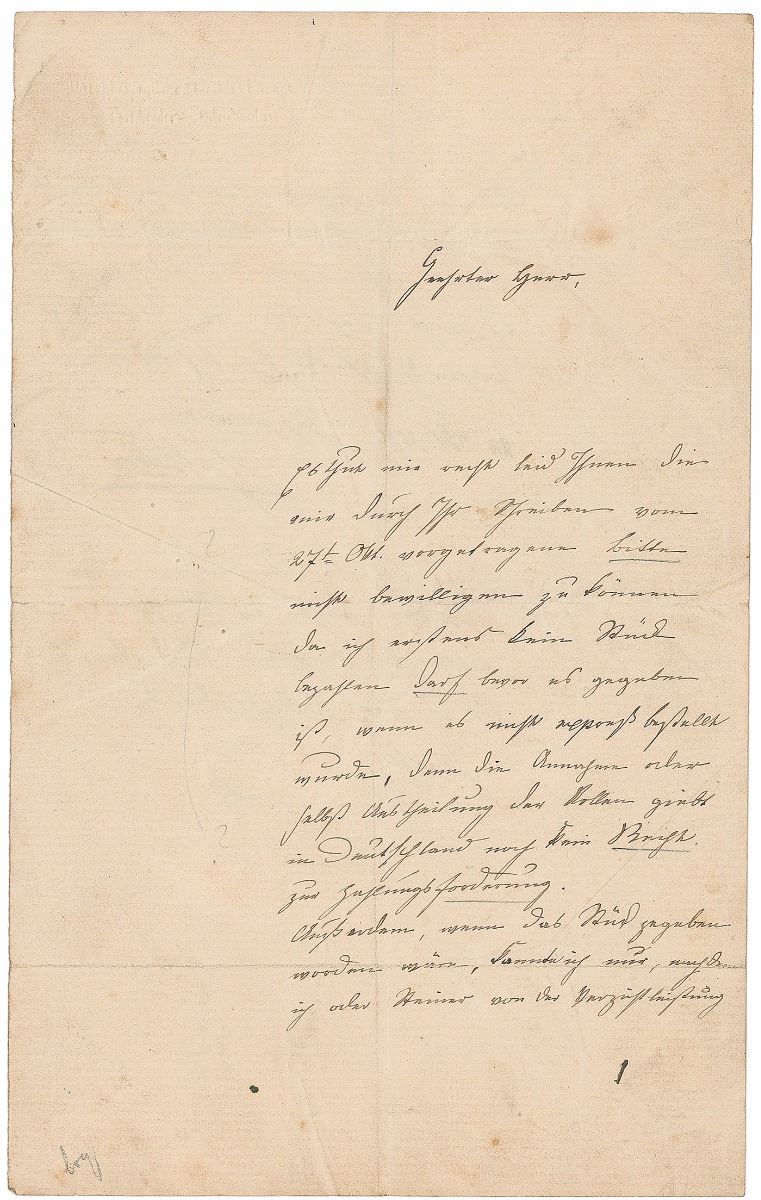 Geehrter Herr,
Es thut mir recht leid Ihnen die
mir durch Ihr Schreiben vom
27t Okt. vorgetragene bitte
nicht bewilligen zu können
da ich erstens kein Stück
bezahlen darf bevor es gegeben
ist, wenn es nicht expreß bestellt
wurde, denn die Annahme oder
selbst Austheilung der Rollen giebt
in Deutschland noch kein Recht
zur Zahlungsforderung.
Außerdem, wenn das Stück gegeben
worden wäre, könnte ich nur, nachdem
ich oder Steiner von der Verzichtleistung
1